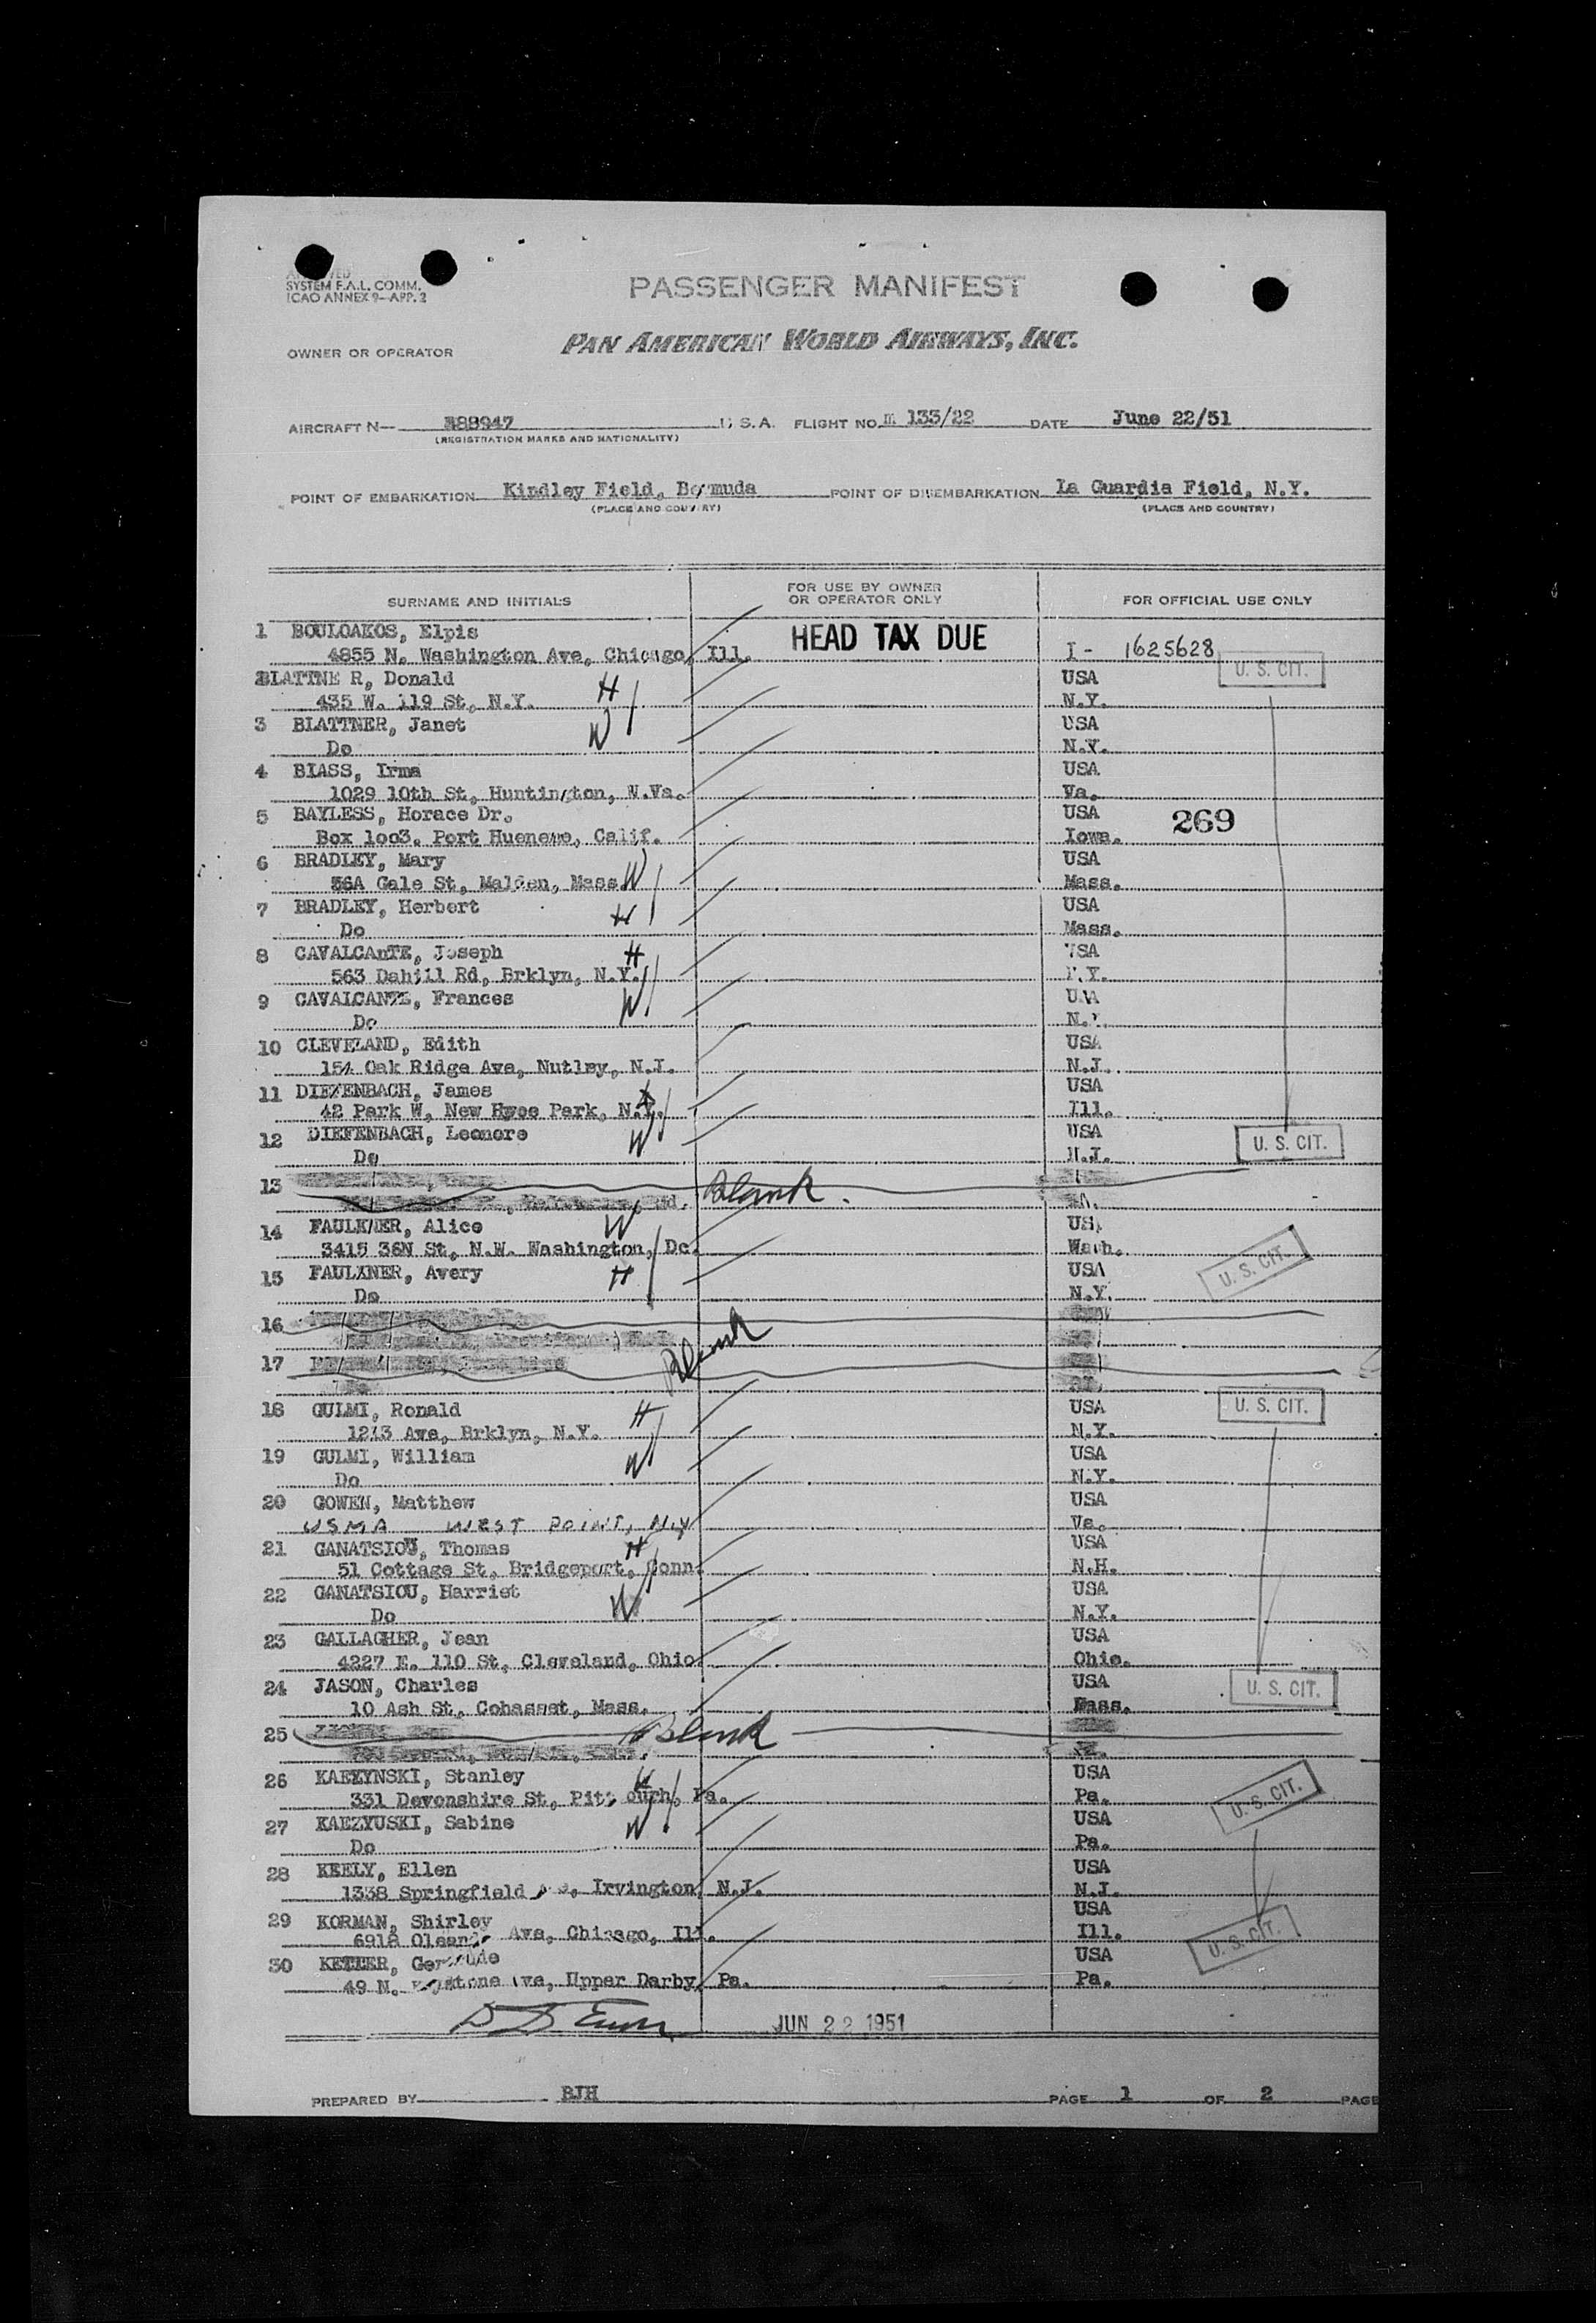 SYSTEM F.A.L. COMM.
ICAO ANNEX 9—APP. 2
PASSENGER MANIFEST
OWNER OR OPERATOR
PAN AMERICAN WORLD AIRWAYS, INC.
AIRCRAFT N— 88947 U.S.A. FLIGHT NO. m 133/22 DATE June 22/51
(REGISTRATION MARKS AND NATIONALITY)
POINT OF EMBARKATION Kindley Field, Bermuda POINT OF DISEMBARKATION La Guardia Field, N.Y.
(PLACE AND COUNTRY) (PLACE AND COUNTRY)
SURNAME AND INITIALS FOR USE BY OWNER OR OPERATOR ONLY FOR OFFICIAL USE ONLY
1 BOULOAKOS, Elpis HEAD TAX DUE
4855 N. Washington Ave, Chicago, Ill. I - 1625628
2 BLATTNE R, Donald H USA U. S. CIT.
435 W. 119 St, N.Y. N.Y.
3 BLATTNER, Janet W USA
Do N.Y.
4 BIASS, Irma USA
1029 10th St, Huntington, W.Va. Va.
5 BAYLESS, Horace Dr. USA 269
Box 1oo3, Port Hueneme, Calif. Iowa.
6 BRADLEY, Mary W USA
36A Gale St, Malden, Mass. Mass.
7 BRADLEY, Herbert H USA
Do Mass.
8 CAVALCAnTE, Joseph H USA
563 Dahill Rd, Brklyn, N.Y. N.Y.
9 CAVALCANTE, Frances W USA
Do N.Y.
10 CLEVELAND, Edith USA
154 Oak Ridge Ave, Nutley, N.J. N.J.
11 DIEFENBACH, James H USA
42 Park W, New Hyde Park, N.Y. Ill.
12 DIEFENBACH, Leonore W USA U. S. CIT.
Do N.J.
13 Blank.
14 FAULKNER, Alice W USA
3415 36N St, N.W. Washington, Dc. Wash.
15 FAULKNER, Avery H USA U. S. CIT.
Do N.Y.
16 Blank
17
18 GULMI, Ronald H USA U. S. CIT.
1213 Ave, Brklyn, N.Y. N.Y.
19 GULMI, William W USA
Do N.Y.
20 GOWEN, Matthew USA
USMA WEST POINT, N.Y. Va.
21 GANATSIOU, Thomas H USA
51 Cottage St, Bridgeport, Conn. N.H.
22 GANATSIOU, Harriet W USA
Do N.Y.
23 GALLAGHER, Jean USA
4227 E. 110 St, Cleveland, Ohio Ohio.
24 JASON, Charles USA U. S. CIT.
10 Ash St, Cohasset, Mass. Mass.
25 Blank
26 KAEZYNSKI, Stanley H USA U. S. CIT.
331 Devonshire St, Pa. Pa.
27 KAEZYUSKI, Sabine W USA
Do Pa.
28 KEELY, Ellen USA
1338 Springfield Irvington, N.J. N.J.
29 KORMAN, Shirley USA
6918 Ave, Chicago, Ill. Ill. U. S. CIT.
30 KETTER, Gertrude USA
49 N. Keystone Ave, Upper Darby, Pa. Pa.
JUN 22 1951
PREPARED BY BJH PAGE 1 OF 2 PAGE